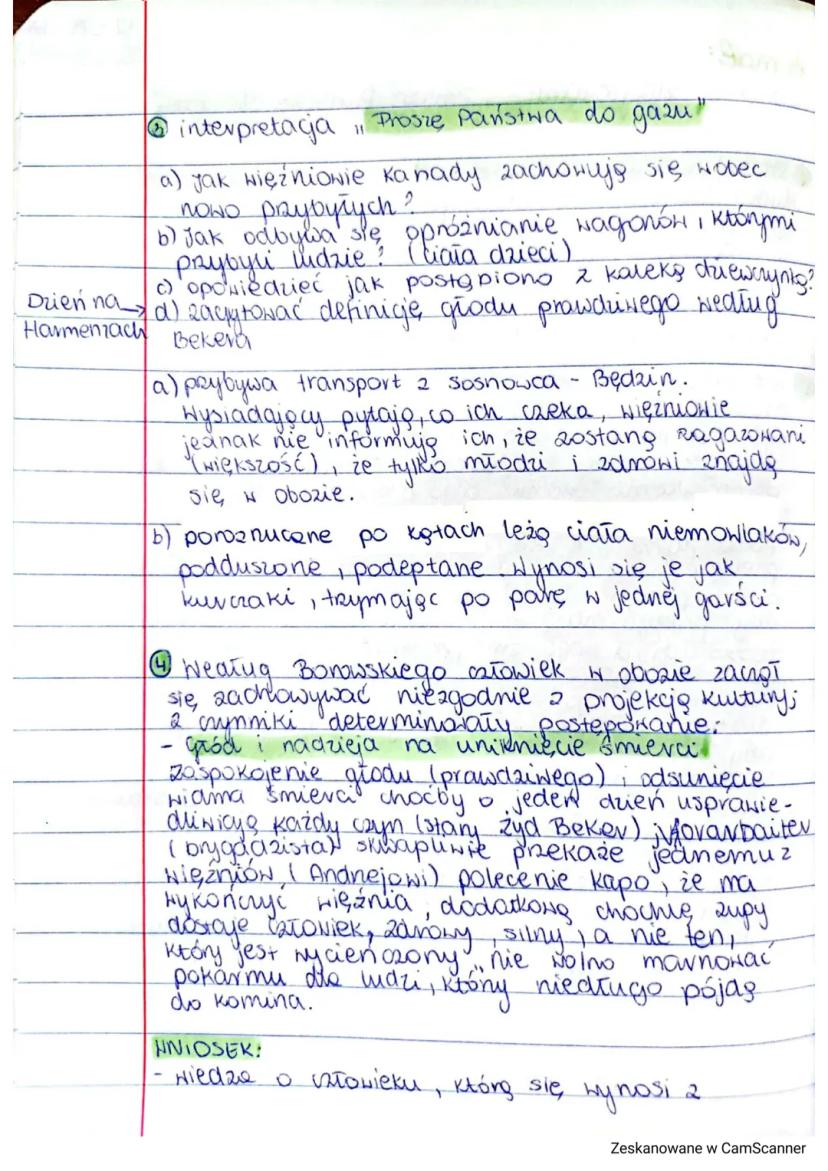 ③ interpretacja „Proszę Państwa do gazu"
a) jak więźniowie kanady zachowują się wobec
nowo przybyłych?
b) Jak odbywa się opróżnianie wagonów, którymi
przybyli ludzie? (ciała dzieci)
c) opowiedzieć jak postąpiono z kaleką dziewczynką?
Dzień na → d) zacytować definicję głodu prawdziwego według
Harmenzach Bekera
a) przybywa transport z Sosnowca - Będzin.
Wysiadający pytają, co ich czeka, więźniowie
jednak nie informują ich, że zostaną zagazowani
(większość), że tylko młodzi i zdrowi znajdą
się w obozie.
b) porozrzucane po kątach leżą ciała niemowlaków,
podduszone, podeptane. Wynosi się je jak
kurczaki, trzymając po parę w jednej garści.
④ Według Borowskiego człowiek w obozie zaczął
się zachowywać niezgodnie z projekcją kultury;
2 czynniki determinowały postępowanie:
- głód i nadzieja na uniknięcie śmierci
zaspokojenie głodu (prawdziwego) i odsunięcie
widma śmierci choćby o jeden dzień usprawie-
dliwiają każdy czyn (stary Żyd Beker) Vorarbaiter
(brygadzista) skwapliwie przekaże jednemu z
więźniów (Andrzejowi) polecenie kapo, że ma
wykończyć więźnia, dodatkową chochlę zupy
dostaje człowiek, zdrowy, silny, a nie ten,
który jest wycieńczony „nie wolno marnować
pokarmu dla ludzi, który niedługo pójdą
do komina.
WNIOSEK:
- wiedza o człowieku, którą się wynosi z
Zeskanowane w CamScanner